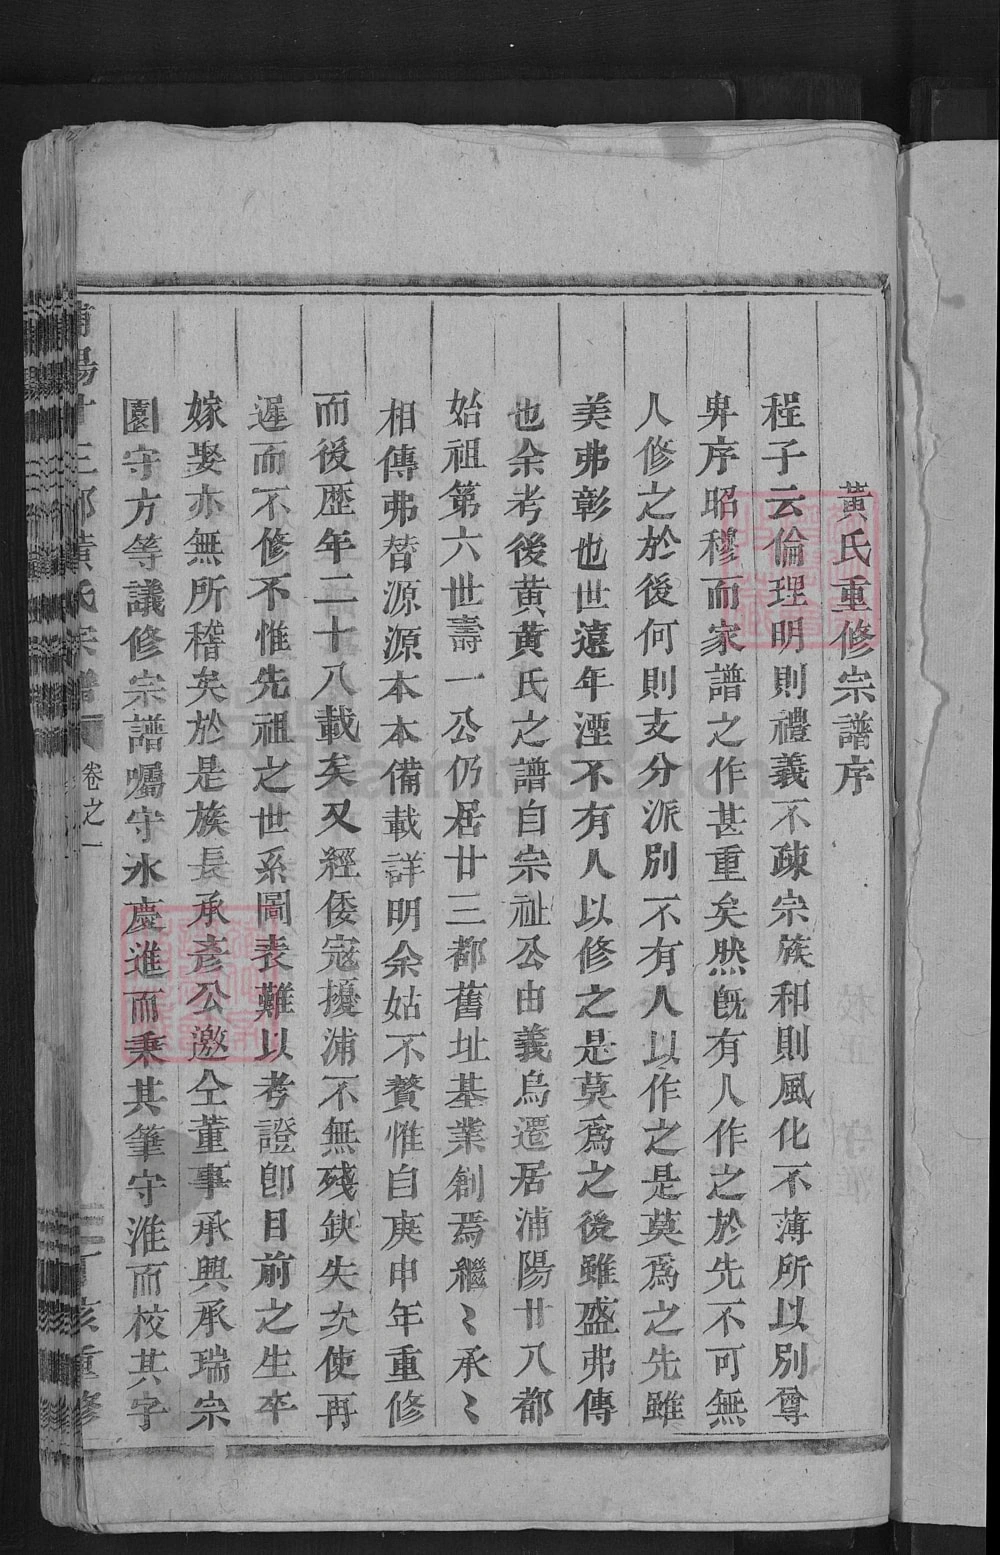 黃氏重修宗譜序
程子云倫理明則禮義不疎宗族和則風化不薄所以別尊
卑序昭穆而家譜之作甚重矣然旣有人作之於先不可無
人修之於後何則支分派別不有人以作之是莫爲之先雖
美弗彰也世遠年湮不有人以修之是莫爲之後雖盛弗傳
也余考後黄黄氏之譜自宗祉公由義烏遷居浦陽廿八都
始祖第六世壽一公仍居廿三都舊址基業創焉繼〻承〻
相傳弗替源源本本備載詳明余姑不贅惟自庚申年重修
而後歷年二十八載矣又經倭寇擾浦不無殘缺失次使再
遲而不修不惟先祖之世系圖表難以考證卽目前之生卒
嫁娶亦無所稽矣於是族長承彥公邀仝董事承興承瑞宗
園守方等議修宗譜囑守水慶進而秉其筆守淮而校其字
黃氏宗譜 卷之一
丁亥重修